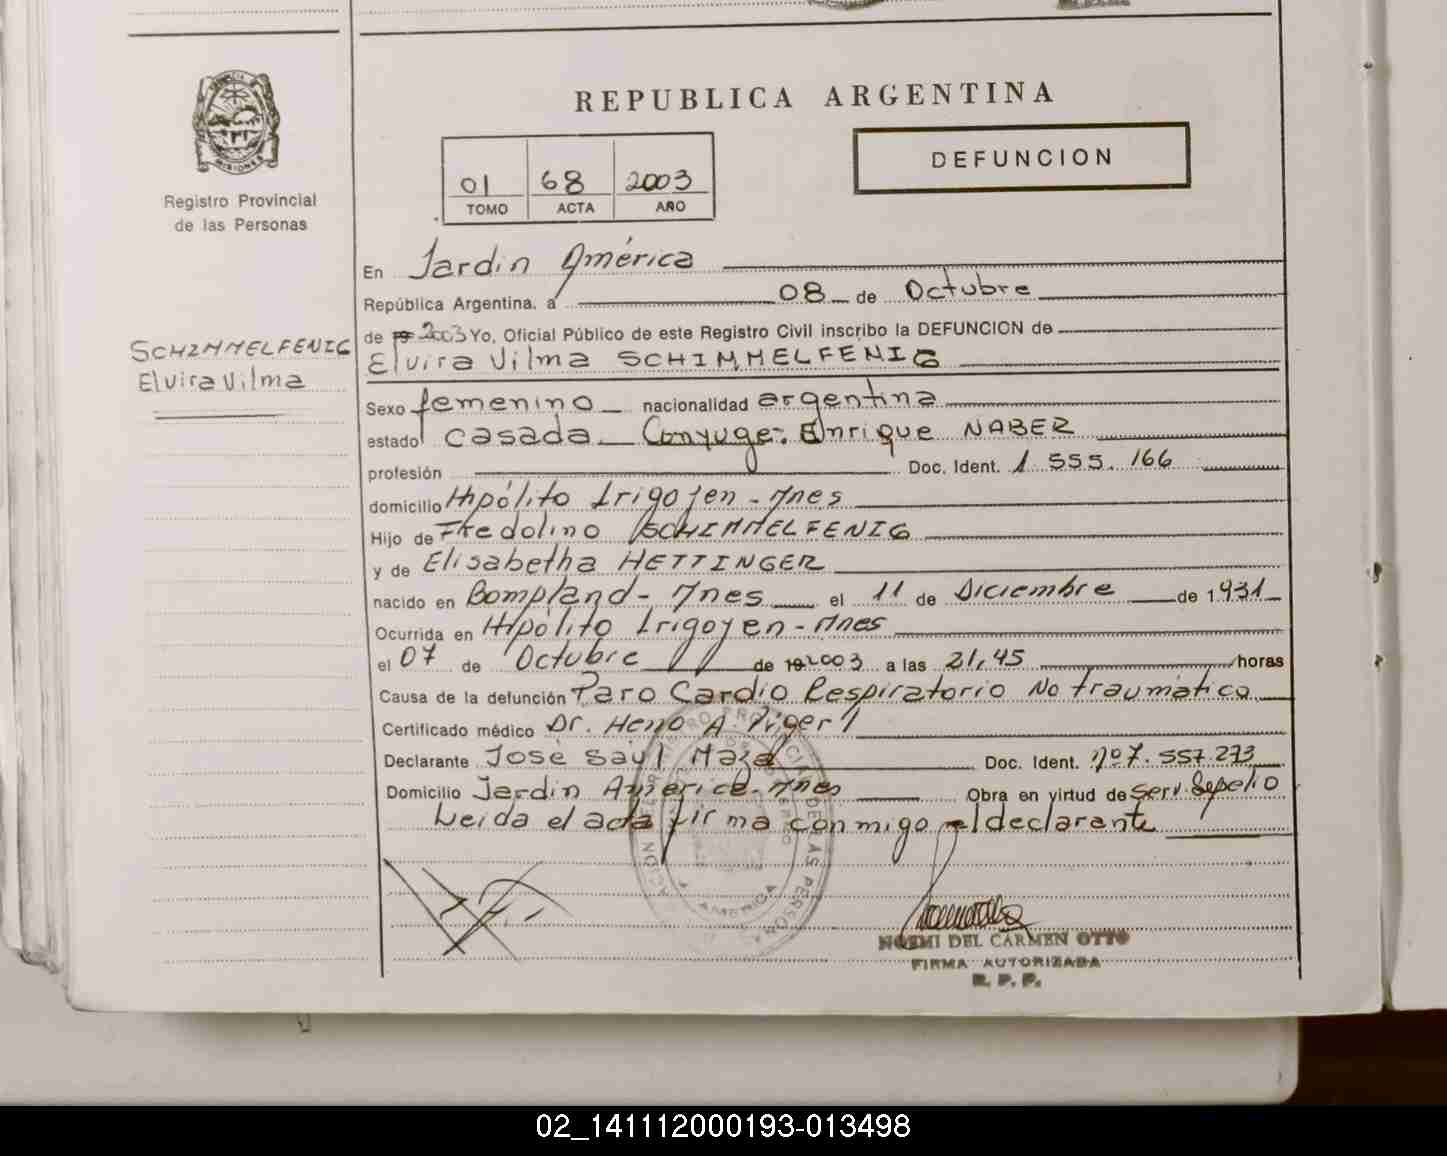 REPUBLICA ARGENTINA
DEFUNCION
01 68 2003
TOMO ACTA AÑO
PROVINCIA DE MISIONES
Registro Provincial
de las Personas
SCHIMMELFENIG
Elvira Vilma
En Jardín América
República Argentina, a 08 de Octubre
de 19 2003 Yo, Oficial Público de este Registro Civil inscribo la DEFUNCION de
Elvira Vilma SCHIMMELFENIG
Sexo femenino nacionalidad argentina
estado casada Conyuge: Enrique NABER
profesión Doc. Ident. 1 555. 166
domicilio Hipólito Irigoyen - Mnes
Hijo de Fredolino SCHIMMELFENIG
y de Elisabetha HETTINGER
nacido en Bompland - Mnes el 11 de Diciembre de 1931
Ocurrida en Hipólito Irigoyen - Mnes
el 07 de Octubre de 19 2003 a las 21,45 horas
Causa de la defunción Paro Cardio Respiratorio No traumatico
Certificado médico Dr. A.
Declarante José Saúl Maza Doc. Ident. nº 7. 557 273
Domicilio Jardín América - Mnes Obra en virtud de Serv. Sepelio
Leida el acta firma conmigo el declarante
NOEMI DEL CARMEN OTTO
FIRMA AUTORIZADA
R. P. P.
02_141112000193-013498